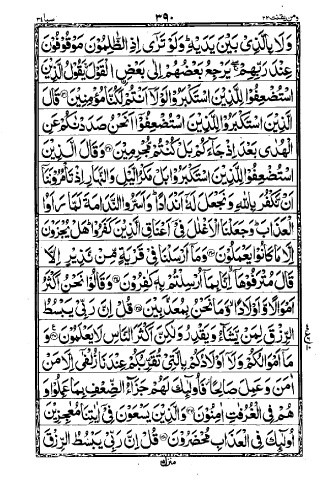 ومن يقنت ٢٢ ٣٩٠ سبا ٣٤
وَلَا بِالَّذِیْ بَیْنَ یَدَیْهِ ؕ وَلَوْ تَرٰۤی اِذِ الظّٰلِمُوْنَ مَوْقُوْفُوْنَ
عِنْدَ رَبِّهِمْ ۖۚ یَرْجِعُ بَعْضُهُمْ اِلٰی بَعْضِ ِۨالْقَوْلَ ۚ یَقُوْلُ الَّذِیْنَ
اسْتُضْعِفُوْا لِلَّذِیْنَ اسْتَكْبَرُوْا لَوْلَاۤ اَنْتُمْ لَكُنَّا مُؤْمِنِیْنَ ۝ قَالَ
الَّذِیْنَ اسْتَكْبَرُوْا لِلَّذِیْنَ اسْتُضْعِفُوْۤا اَنَحْنُ صَدَدْنٰكُمْ عَنِ
الْهُدٰی بَعْدَ اِذْ جَآءَكُمْ بَلْ كُنْتُمْ مُّجْرِمِیْنَ ۝ وَقَالَ الَّذِیْنَ
اسْتُضْعِفُوْا لِلَّذِیْنَ اسْتَكْبَرُوْا بَلْ مَكْرُ الَّیْلِ وَالنَّهَارِ اِذْ تَاْمُرُوْنَنَاۤ
اَنْ نَّكْفُرَ بِاللّٰهِ وَنَجْعَلَ لَهٗۤ اَنْدَادًا ؕ وَاَسَرُّوا النَّدَامَةَ لَمَّا رَاَوُا
الْعَذَابَ ؕ وَجَعَلْنَا الْاَغْلٰلَ فِیْۤ اَعْنَاقِ الَّذِیْنَ كَفَرُوْا ؕ هَلْ یُجْزَوْنَ
اِلَّا مَا كَانُوْا یَعْمَلُوْنَ ۝ وَمَاۤ اَرْسَلْنَا فِیْ قَرْیَةٍ مِّنْ نَّذِیْرٍ اِلَّا
قَالَ مُتْرَفُوْهَاۤ ۙ اِنَّا بِمَاۤ اُرْسِلْتُمْ بِهٖ كٰفِرُوْنَ ۝ وَقَالُوْا نَحْنُ اَكْثَرُ
اَمْوَالًا وَّاَوْلَادًا ۙ وَّمَا نَحْنُ بِمُعَذَّبِیْنَ ۝ قُلْ اِنَّ رَبِّیْ یَبْسُطُ
الرِّزْقَ لِمَنْ یَّشَآءُ وَیَقْدِرُ وَلٰكِنَّ اَكْثَرَ النَّاسِ لَا یَعْلَمُوْنَ ۝
وَمَاۤ اَمْوَالُكُمْ وَلَاۤ اَوْلَادُكُمْ بِالَّتِیْ تُقَرِّبُكُمْ عِنْدَنَا زُلْفٰۤی اِلَّا مَنْ
اٰمَنَ وَعَمِلَ صَالِحًا ؗ فَاُولٰٓىِٕكَ لَهُمْ جَزَآءُ الضِّعْفِ بِمَا عَمِلُوْا وَ
هُمْ فِی الْغُرُفٰتِ اٰمِنُوْنَ ۝ وَالَّذِیْنَ یَسْعَوْنَ فِیْۤ اٰیٰتِنَا مُعٰجِزِیْنَ
اُولٰٓىِٕكَ فِی الْعَذَابِ مُحْضَرُوْنَ ۝ قُلْ اِنَّ رَبِّیْ یَبْسُطُ الرِّزْقَ